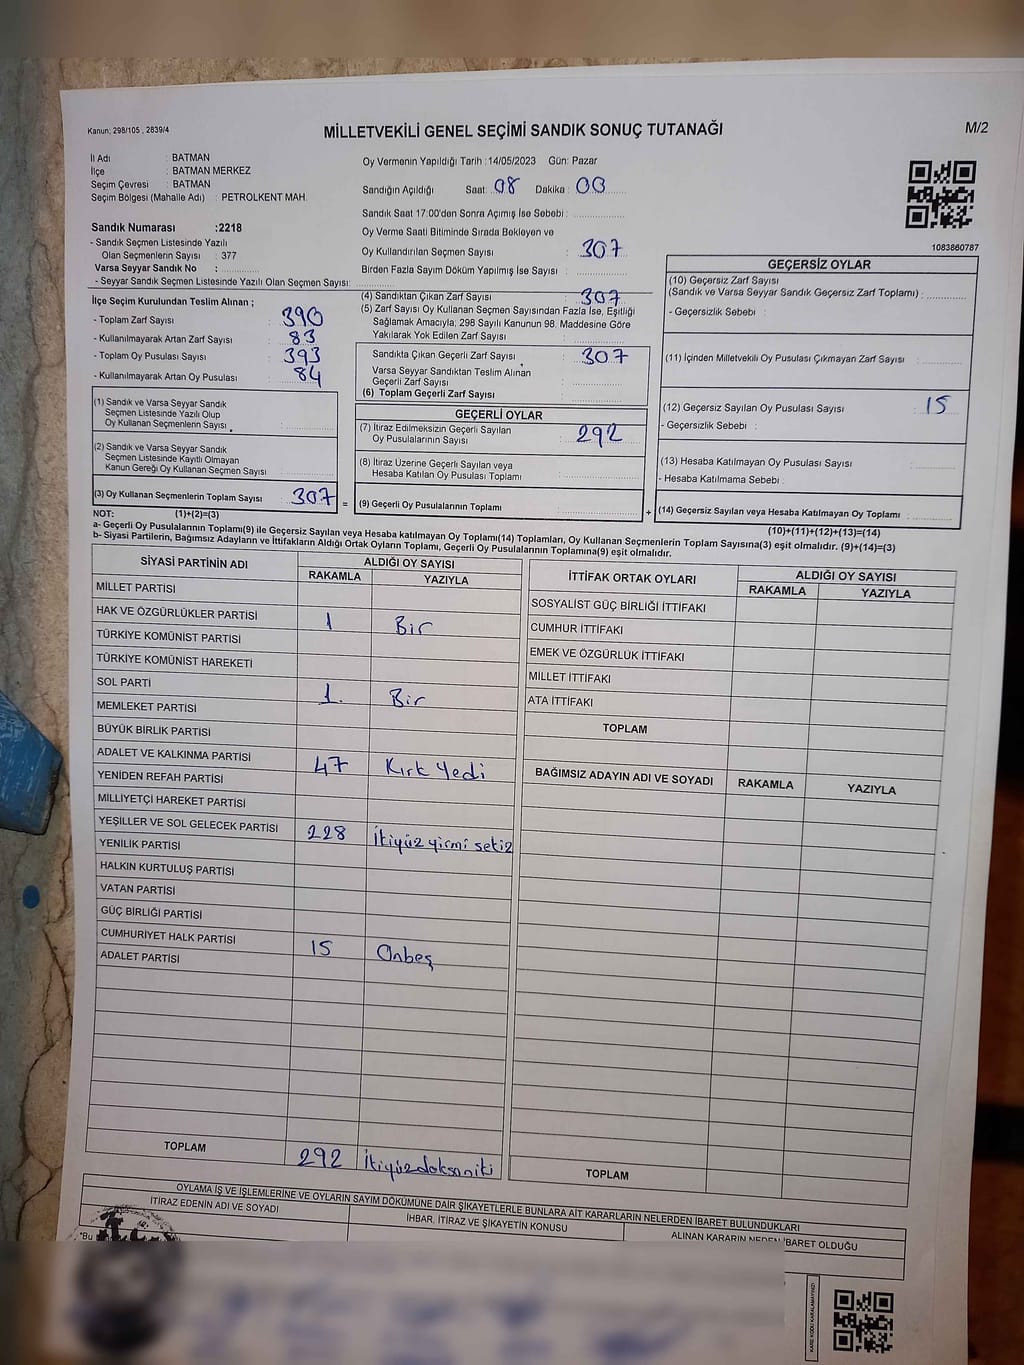 Kanun; 298/105 , 2839/4
MİLLETVEKİLİ GENEL SEÇİMİ SANDIK SONUÇ TUTANAĞI
M/2
İl Adı : BATMAN
İlçe : BATMAN MERKEZ
Seçim Çevresi : BATMAN
Seçim Bölgesi (Mahalle Adı) : PETROLKENT MAH.
Sandık Numarası :2218
- Sandık Seçmen Listesinde Yazılı
Olan Seçmenlerin Sayısı : 377
Varsa Seyyar Sandık No :
- Seyyar Sandık Seçmen Listesinde Yazılı Olan Seçmen Sayısı:
İlçe Seçim Kurulundan Teslim Alınan ;
- Toplam Zarf Sayısı : 390
- Kullanılmayarak Artan Zarf Sayısı : 83
- Toplam Oy Pusulası Sayısı : 393
- Kullanılmayarak Artan Oy Pusulası : 84
(1) Sandık ve Varsa Seyyar Sandık
Seçmen Listesinde Yazılı Olup
Oy Kullanan Seçmenlerin Sayısı :
(2) Sandık ve Varsa Seyyar Sandık
Seçmen Listesinde Kayıtlı Olmayan
Kanun Gereği Oy Kullanan Seçmen Sayısı :
(3) Oy Kullanan Seçmenlerin Toplam Sayısı : 307 =
Oy Vermenin Yapıldığı Tarih :14/05/2023 Gün: Pazar
Sandığın Açıldığı Saat: 08 Dakika : 00
Sandık Saat 17:00'den Sonra Açımış İse Sebebi :
Oy Verme Saati Bitiminde Sırada Bekleyen ve
Oy Kullandırılan Seçmen Sayısı : 307
Birden Fazla Sayım Döküm Yapılmış İse Sayısı :
(4) Sandıktan Çıkan Zarf Sayısı : 307
(5) Zarf Sayısı Oy Kullanan Seçmen Sayısından Fazla İse, Eşitliği
Sağlamak Amacıyla; 298 Sayılı Kanunun 98. Maddesine Göre
Yakılarak Yok Edilen Zarf Sayısı :
Sandıkta Çıkan Geçerli Zarf Sayısı : 307
Varsa Seyyar Sandıktan Teslim Alınan
Geçerli Zarf Sayısı :
(6) Toplam Geçerli Zarf Sayısı :
GEÇERLİ OYLAR
(7) İtiraz Edilmeksizin Geçerli Sayılan
Oy Pusulalarının Sayısı : 292
(8) İtiraz Üzerine Geçerli Sayılan veya
Hesaba Katılan Oy Pusulası Toplamı :
(9) Geçerli Oy Pusulalarının Toplamı : +
1083860787
GEÇERSİZ OYLAR
(10) Geçersiz Zarf Sayısı
(Sandık ve Varsa Seyyar Sandık Geçersiz Zarf Toplamı) :
- Geçersizlik Sebebi :
(11) İçinden Milletvekili Oy Pusulası Çıkmayan Zarf Sayısı :
(12) Geçersiz Sayılan Oy Pusulası Sayısı : 15
- Geçersizlik Sebebi :
(13) Hesaba Katılmayan Oy Pusulası Sayısı :
- Hesaba Katılmama Sebebi :
(14) Geçersiz Sayılan veya Hesaba Katılmayan Oy Toplamı :
NOT: (1)+(2)=(3)
(10)+(11)+(12)+(13)=(14)
a- Geçerli Oy Pusulalarının Toplamı(9) ile Geçersiz Sayılan veya Hesaba katılmayan Oy Toplamı(14) Toplamları, Oy Kullanan Seçmenlerin Toplam Sayısına(3) eşit olmalıdır. (9)+(14)=(3)
b- Siyasi Partilerin, Bağımsız Adayların ve İttifakların Aldığı Ortak Oyların Toplamı, Geçerli Oy Pusulalarının Toplamına(9) eşit olmalıdır.
SİYASİ PARTİNİN ADI ALDIĞI OY SAYISI
RAKAMLA YAZIYLA
MİLLET PARTİSİ
HAK VE ÖZGÜRLÜKLER PARTİSİ 1 Bir
TÜRKİYE KOMÜNİST PARTİSİ
TÜRKİYE KOMÜNİST HAREKETİ
SOL PARTİ 1. Bir
MEMLEKET PARTİSİ
BÜYÜK BİRLİK PARTİSİ
ADALET VE KALKINMA PARTİSİ 47 Kırk Yedi
YENİDEN REFAH PARTİSİ
MİLLİYETÇİ HAREKET PARTİSİ
YEŞİLLER VE SOL GELECEK PARTİSİ 228 İkiyüz yirmi sekiz
YENİLİK PARTİSİ
HALKIN KURTULUŞ PARTİSİ
VATAN PARTİSİ
GÜÇ BİRLİĞİ PARTİSİ
CUMHURİYET HALK PARTİSİ 15 Onbeş
ADALET PARTİSİ
TOPLAM 292 İkiyüzdoksaniki
İTTİFAK ORTAK OYLARI ALDIĞI OY SAYISI
RAKAMLA YAZIYLA
SOSYALİST GÜÇ BİRLİĞİ İTTİFAKI
CUMHUR İTTİFAKI
EMEK VE ÖZGÜRLÜK İTTİFAKI
MİLLET İTTİFAKI
ATA İTTİFAKI
TOPLAM
BAĞIMSIZ ADAYIN ADI VE SOYADI RAKAMLA YAZIYLA
TOPLAM
OYLAMA İŞ VE İŞLEMLERİNE VE OYLARIN SAYIM DÖKÜMÜNE DAİR ŞİKAYETLERLE BUNLARA AİT KARARLARIN NELERDEN İBARET BULUNDUKLARI
İTİRAZ EDENİN ADI VE SOYADI
İHBAR, İTİRAZ VE ŞİKAYETİN KONUSU
ALINAN KARARIN NEDEN İBARET OLDUĞU
"Bu